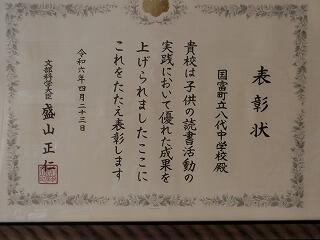 表彰状
国富町立八代中学校殿
貴校は子供の読書活動の
実践において優れた成果を
上げられましたここに
これをたたえ表彰します
令和六年四月二十三日
文部科学大臣 盛山正仁